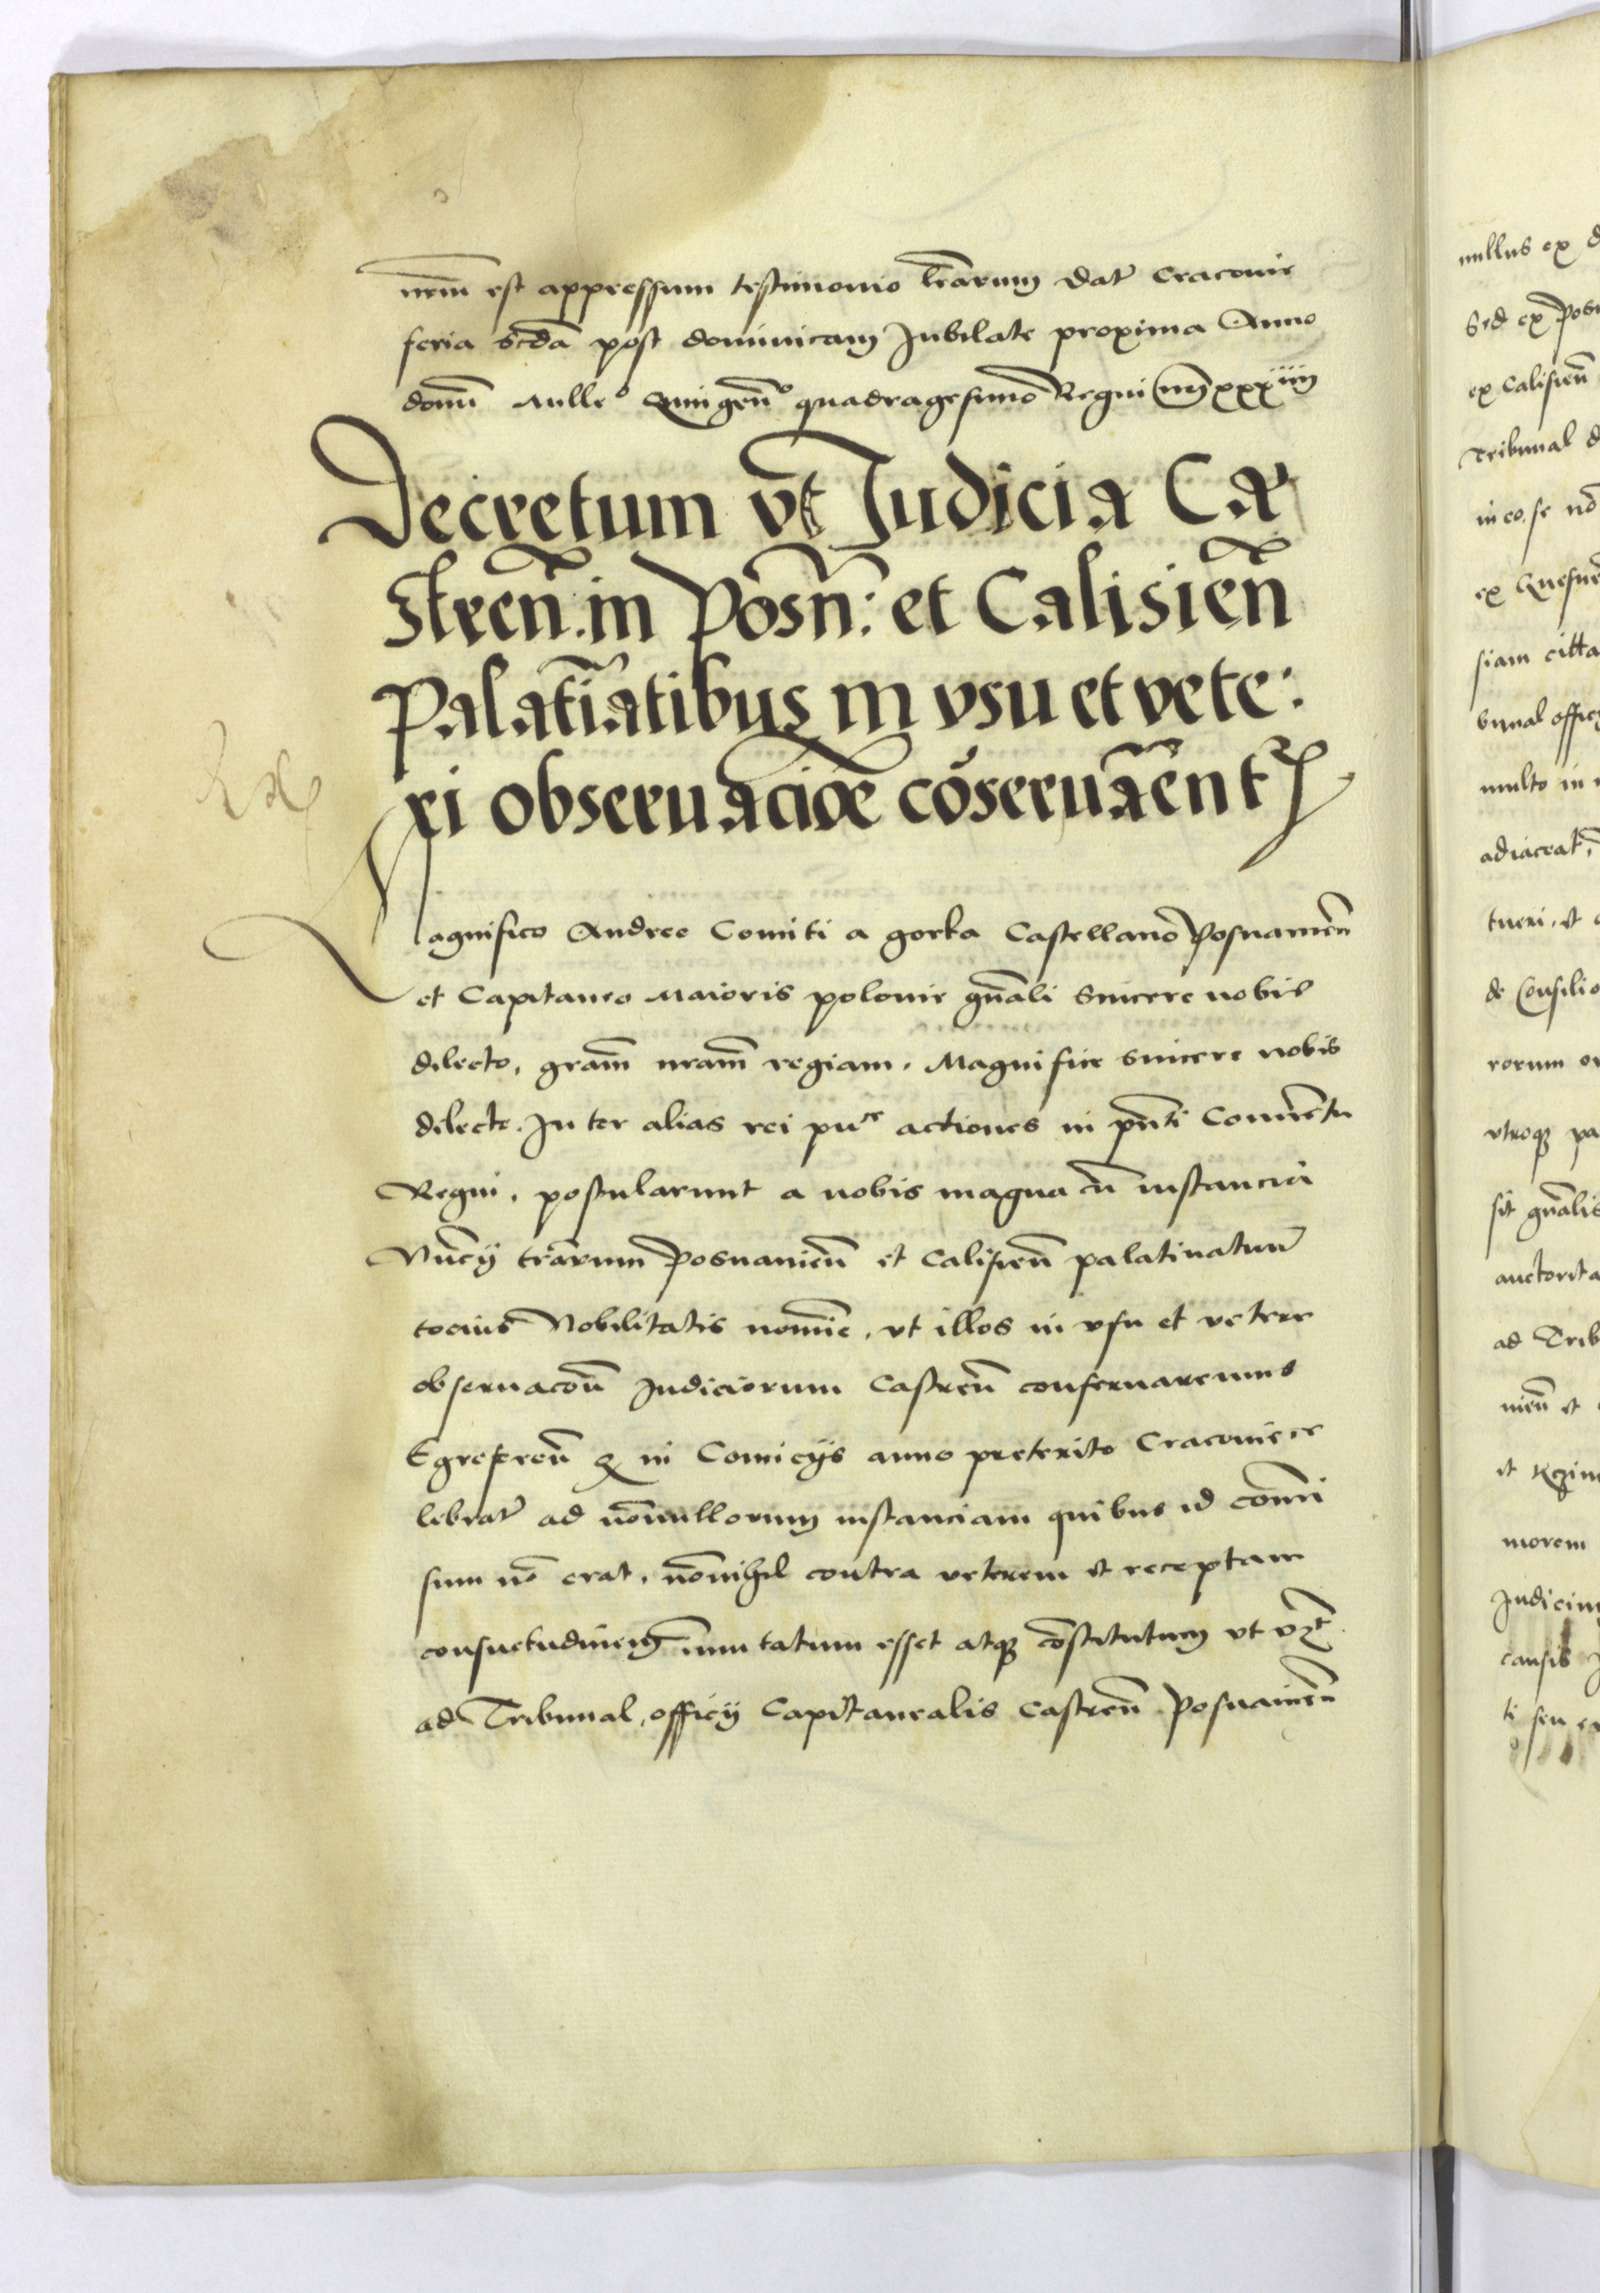 nrm̃ est appressum testimonio lr̃arum dat̃ Cracovie
feria sc̃da post dominicam Jubilate proxima Anno
domĩ Mill̃eo Quingeño quadragesimo Regni nr̃i xxxiiii
Decretum vt̃ Judicia Ca
streñ. in Posñ: et Calisieñ
Palatĩatibus in vsu et vete:
ri obseruacioẽ cõseruarẽntr
Magnifico Andree Comiti a gorka Castellano Posnanieñ
et Capitaneo Maioris polonie gñali Sincere nobis
dilecto, gram̃ nram̃ regiam. Magnifice sincere nobis
dilecte. Inter alias rei puce actiones in pñti Conuentu
Regni, postularunt a nobis magna cũ instancia
Nũcij trãrum Posnanieñ et Calisieñ palatinatuũ
tocius Nobilitatis nomĩe, vt illos in vsu et vetere
obseruacoñ Judiciorum Castreñ conseruaremus
Egreferent̃ q̃ in Comicijs anno preterito Cracouie ce
lebrat̃ ad nõnullorum instanciam quibus id com̃i
sum nõ erat, nõnihil contra veterem et receptam
consuetudinem immutatum esset atq3 cõstitutum vt vz̃
ad Tribunal, officij Capitanealis Castreñ Posnanieñ
nullus ex
Sed ex Posn
ex Calisieñ
Tribunal d
in eo. se nõ
ex Gnesneñ
siam citta
bunal officij
multo in
adiaceat,
tueri, et
de Consilio
rorum
vtroq3 pa
sit gñalis
auctorita
ad Trib
nieñ et
et
morem
Judicium
causis
ti seu